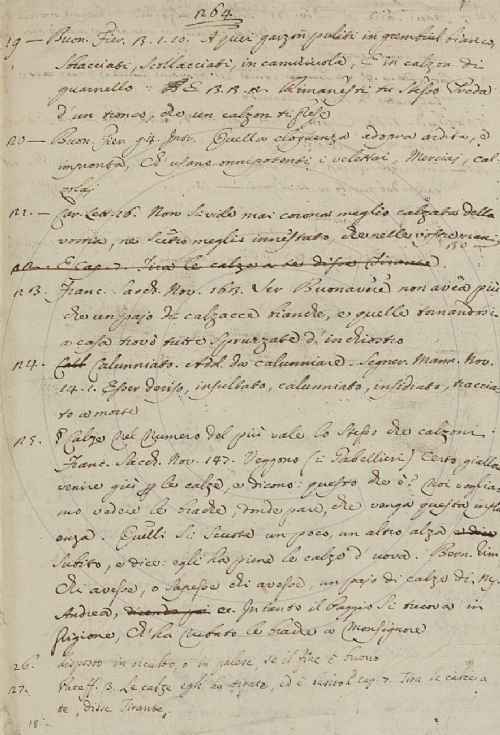 1264.
19 — Buon. Fier. 3. 1. 10. A quei garzon puliti in grembiul bianco,
Sbracciati, scollacciati, in camiciuola, E in calzon di
guarnello E Rimanesti tu stesso Preda
d'un tronco, che un calzon ti
20 — Buon. Fier. g. 4. Intr. Quella eloquenza adopra ardita, e
impronta, Ch'usano onnipotenti i velettai, Merciai, cal-
zolaj
21. — Car. Lett. 26. Non si vide mai corona meglio calzata della
vostra, ne scettro meglio innestato, che nelle vostre mani
E Cap. 7. Tira le calze a te disse Tirante
123. Franc. Sacch. Nov. 163. Ser Buonavere non avea più
che un pajo di calzacce bianche, e quelle tornandosi
a casa trovò tutte spruzzate d'inchiostro
124. Calunniato. Add. da calunniare. Segner. Mann. Nov.
14. 1. Esser deriso, insultato, calunniato, insidiato, traccia-
to a morte
125. § Calze nel numero del più vale lo stesso che calzoni.
Franc. Sacch. Nov. 147. Veggono (i Gabellieri) certo giallor
venire giù le calze, e dicono: questo che è? Noi voglia-
mo vedere le brache, donde pare, che venga questa influ
enza. Quelli si scuote un poco, un altro alza
subito, e dice: egli ha piene le calze d'uova. Bern. rim
Chi avesse, o sapesse chi avesse, un pajo di calze di
Andrea, ec. Intanto il Paggio si truova in
Prigione, Ch'ha rubato le brache a Monsignore
26. in occulto, o in palese, se il fine è buono
27. Pataff. 3. Le calze egli ha tirate, ed è cap. 7. Tira le calze a
te, disse Tirante,
18